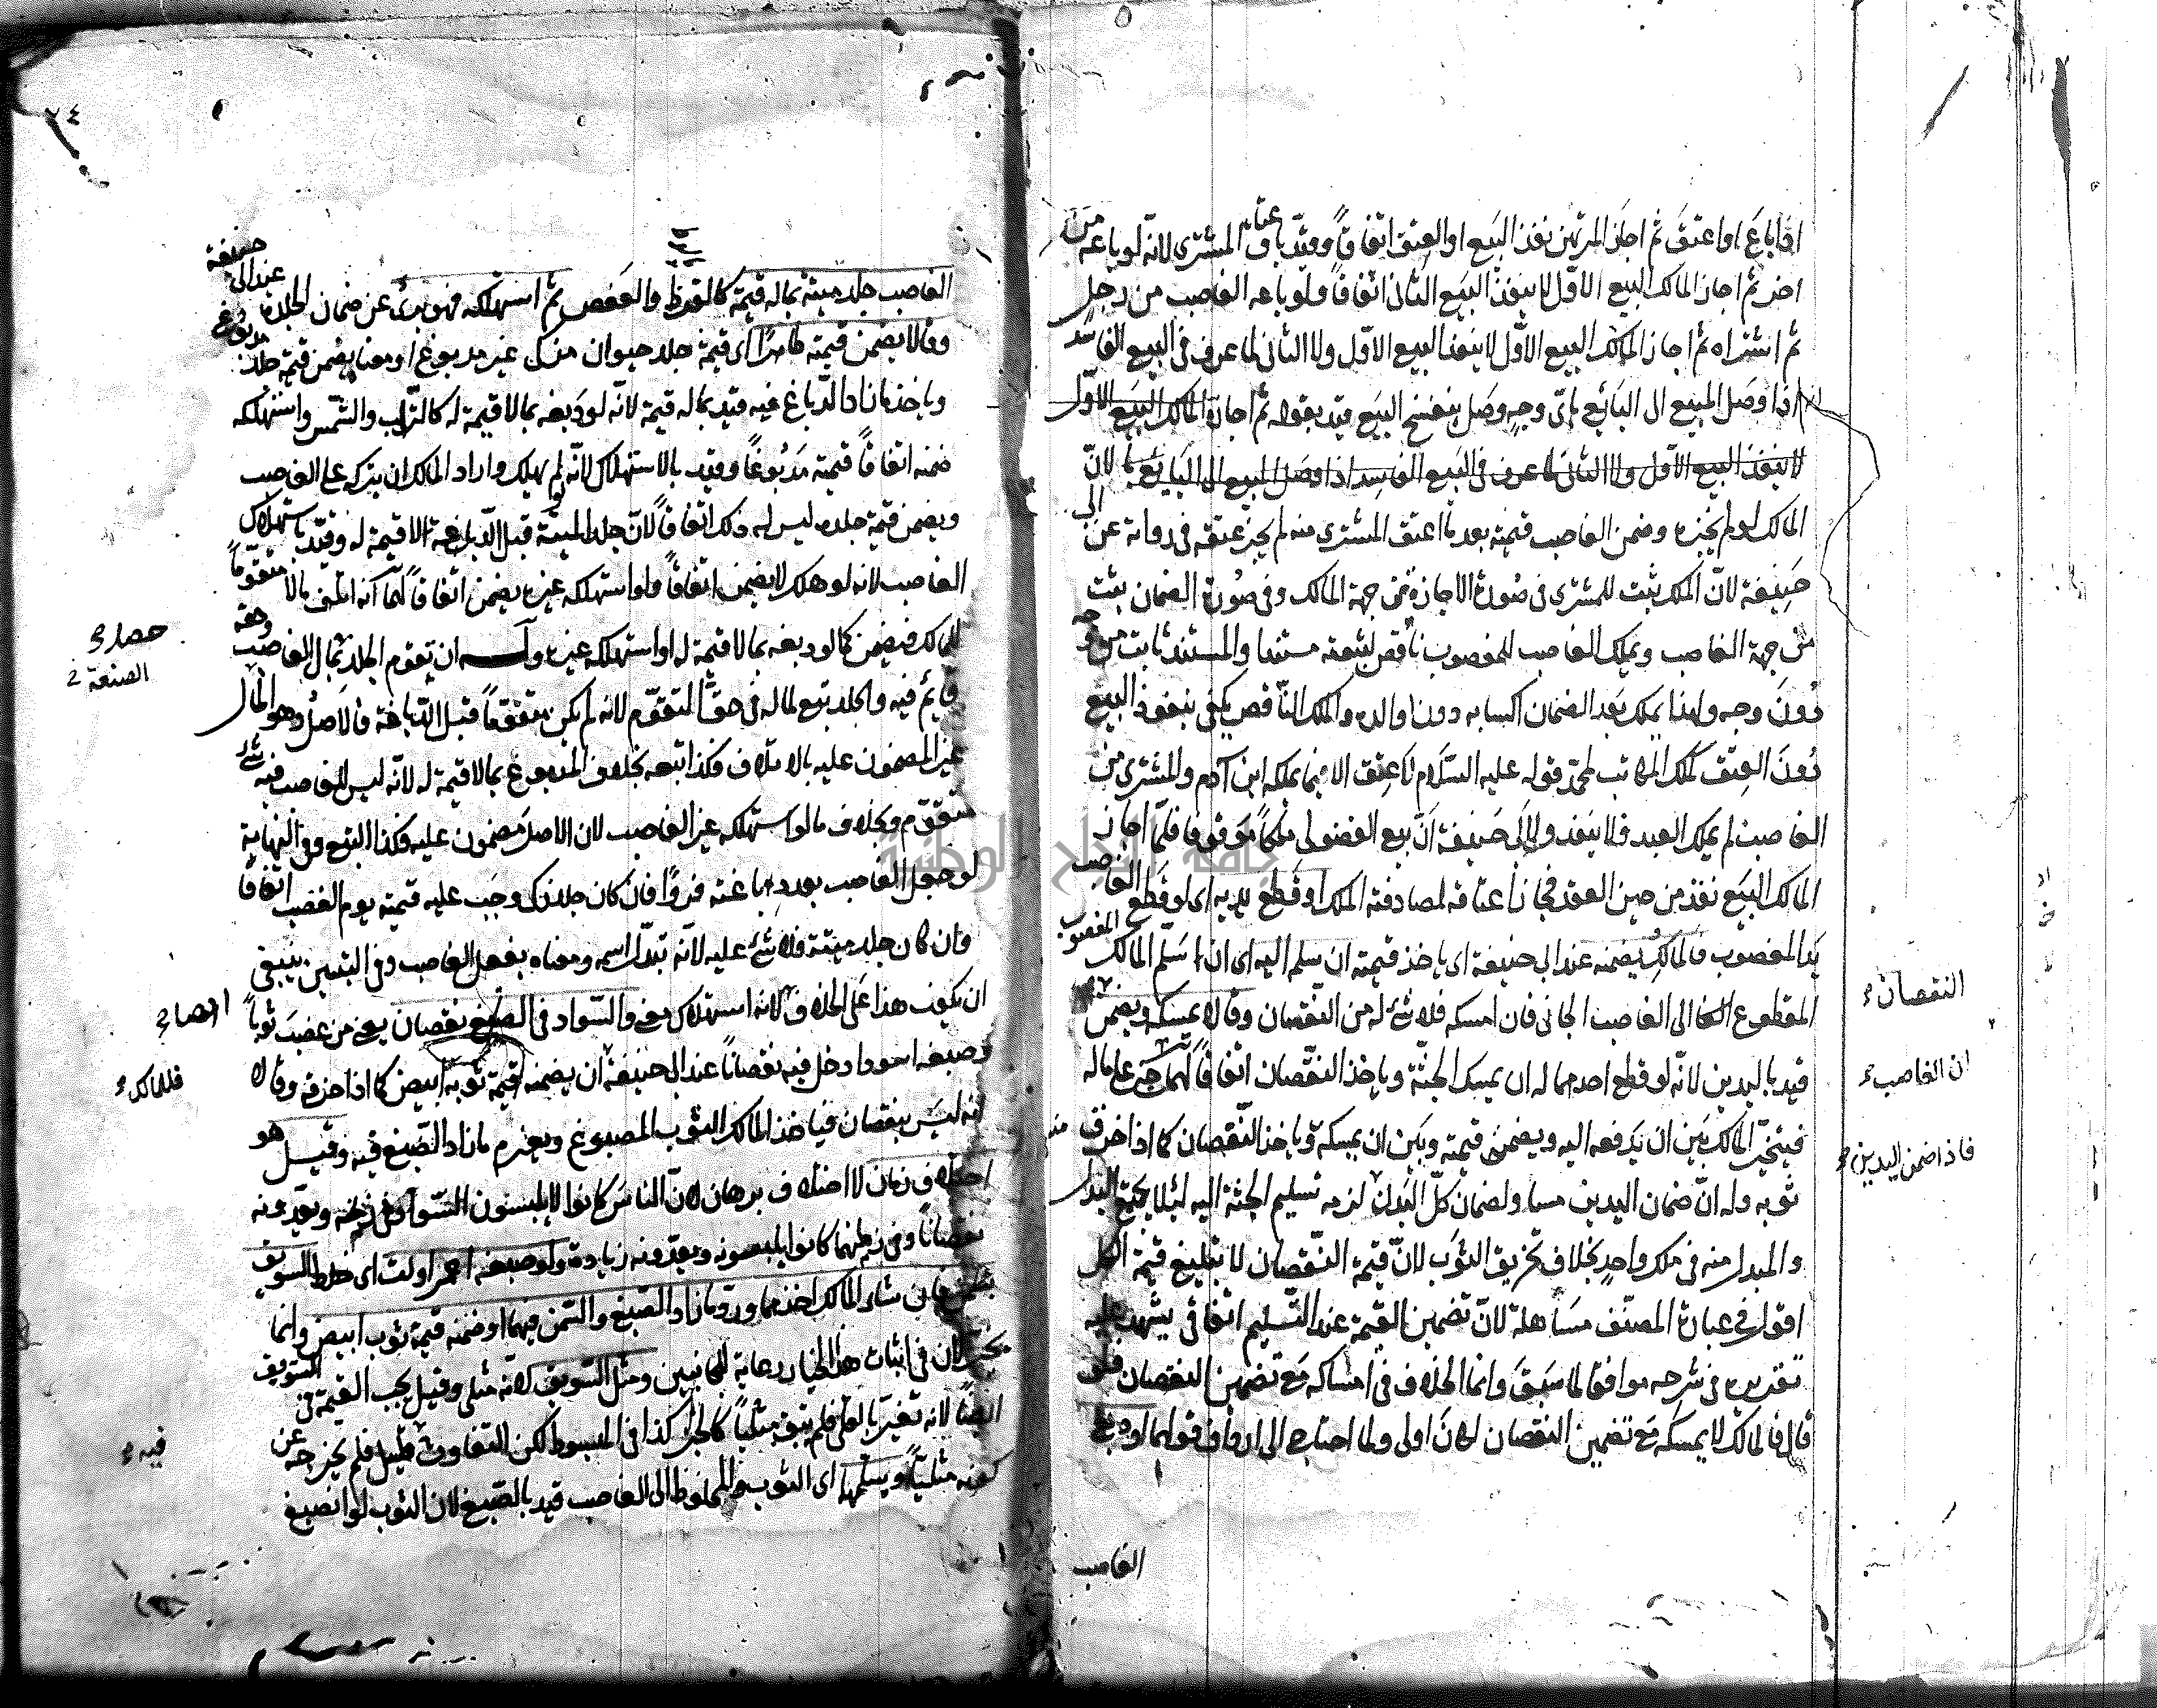 اذا باع او اعتق ثم اجاز المرتهن نفذ البيع او العتق اتفاقا وقيد باعتاق المشترى لانه لو باعه من
اخر ثم اجاز المالك البيع الاول لا ينفذ البيع الثانى اتفاقا ولو باعه الغاصب من رجل
ثم اشتراه ثم اجاز المالك البيع الاول لا ينفذ البيع الاول ولا الثانى لما عرف فى البيع الفاسد
اذا وصل المبيع الى البائع باى وجه وصل ينفسخ البيع قيد بقوله ثم اجازة المالك البيع الاول
لا ينفذ البيع الاول ولا الثانى لما عرف فى البيع الفاسد اذا وصل المبيع الى البايع لان
المالك لو لم يجزه وضمن الغاصب قيمته بعد ما اعتق المشترى منه لم يجز عتقه فى رواية عن ابى
حنيفة لان الملك يثبت للمشترى فى صورة الاجازة من جهة المالك وفى صورة الضمان يثبت
من جهة الغاصب وتملك الغاصب للمغصوب ناقص لثبوته مستندا والمستند ثابت من وجه
دون وجه ولهذا يملك بعد الضمان اكسابه دون اولاده والملك الناقص يكفى بنفوذ البيع
دون العتق كملك المكاتب لمحمد قوله عليه السلام لا عتق الا فيما يملكه ابن آدم والمشترى من
الغاصب لم يملك العبد فلا ينفذ ولابى حنيفة ان بيع الفضولى ملكا موقوفا فلما اجاز
المالك البيع نفذ من حين العقد فجاز اعتاقه لمصادفته الملك او قطع يديه اى لو قطع الغاصب
يدا المغصوب فالمالك يضمنه عند ابى حنيفة اى ياخذ قيمته ان سلم اليه اى ان سلم المالك المغصوب
المقطوع الى الغاصب الجانى فان امسكه فلا شئ له من النقصان وقالا يمسكه ويضمن
النقصان
قيد باليدين لانه لو قطع احدهما له ان يمسك الجثة وياخذ النقصان اتفاقا لهما جنى على ماله
ان الغاصب
فيتخير المالك بين ان يدفعه اليه ويضمن قيمته وبين ان يمسكه وياخذ النقصان كما اذا خرق
ثوبه وله ان ضمان اليدين ولضمان كل البدن لزمه تسليم الجثة اليه لئلا يجتمع البدل
فاذا ضمن اليدين
والمبدل منه فى ملك واحد بخلاف تخريق الثوب لان قيمة النقصان لا تبلغ قيمة الكل
اقول فى عبارة المصنف مساهلة لان تضمين القيمة عند التسليم اتفاقى يشهد عليه
تقريره فى شرحه موافقا لما سبق وانما الخلاف فى امساكه مع تضمين النقصان فلو
قال فالمالك لا يمسكه مع تضمين النقصان لكان اولى ولما احتاج الى ارداف قولهما او دبغ
الغاصب
٢٤
الغاصب جلد ميتة بماله قيمة كالقرظ والعفص ثم استهلكه فهو برئ عن ضمان الجلد عند ابى حنيفة
وقالا يضمن قيمته طاهرا اى قيمة جلد حيوان مذكى غير مدبوغ او معناه يضمن قيمة جلد مدبوغ
وياخذ ما زاد الدباغ فيه قيد بماله قيمة لانه لو دبغه بما لا قيمة له كالتراب والشمس واستهلكه
ضمنه اتفاقا قيمته مدبوغا وقيد بالاستهلاك لانه لو لم يهلك واراد المالك ان يتركه على الغاصب
ويضمن قيمة جلده ليس له ذلك اتفاقا لان جلد الميتة قبل الدباغة لا قيمة له وقيد باستهلاك
الغاصب لانه لو هلك لا يضمن اتفاقا ولو استهلكه غيره يضمن اتفاقا لهما انه اتلف مالا متقوما
للمالك فيضمن كما لو دبغه بما لا قيمة له او استهلكه غيره وله ان تقوم الجلد بمال الغاصب وحقه
حصل
الصنعة
قايم فيه والجلد تبع لماله فى حق التقوم لانه لم يكن متقوما قبل الدباغة والاصل وهو المال
غير المضمون عليه بالاتلاف فكذا تبعه بخلاف المدبوغ بما لا قيمة له لانه ليس للغاصب فيه شئ
متقوم وبخلاف ما لو استهلكه غير الغاصب لان الاصل مضمون عليه فكذا التبع وفى النهاية
لو جعل الغاصب بعد دباغته فروا فان كان جلد ذكى وجب عليه قيمته يوم الغصب اتفاقا
وان كان جلد ميتة فلا شئ عليه لانه تبدل اسمه ومعناه بفعل الغاصب وفى التبيين ينبغى
ان يكون هذا على الخلاف لانه استهلاك معنى والسواد فى الصبغ نقصان يعنى من غصب ثوبا
وصبغه اسود ادخل فيه نقصانا عند ابى حنيفة ان يضمنه قيمة ثوبه ابيض كما اذا خرقه وقالا
فللمالك
انه ليس بنقصان فياخذ المالك الثوب المصبوغ ويغرم ما زاد الصبغ فيه وقيل هو
اختلاف زمان لا اختلاف برهان لان الناس كانوا لا يلبسون السواد فى زمنه ويعدونه
نقصانا وفى زمنهما كانوا يلبسونه ويعدونه زيادة ولو صبغه احمر او لت اى خلط السويق
بسمن فان شاء المالك اخذهما ورد ما زاد الصبغ والسمن فيهما او ضمنه قيمة ثوب ابيض وانما
يخير لان فى اثبات هذا الخيار رعاية للجانبين ومثل السويق لانه مثلى وقيل يجب القيمة فى السويق
ايضا لانه تغير بالقلى فلم يبق مثليا كالخبز كذا فى المبسوط لكن التفاوت قليل فلم يخرجه عن
فيه
كونه مثليا ويسلمها اى الثوب والمخلوط الى الغاصب قيد بالصبغ لان الثوب لو انصبغ